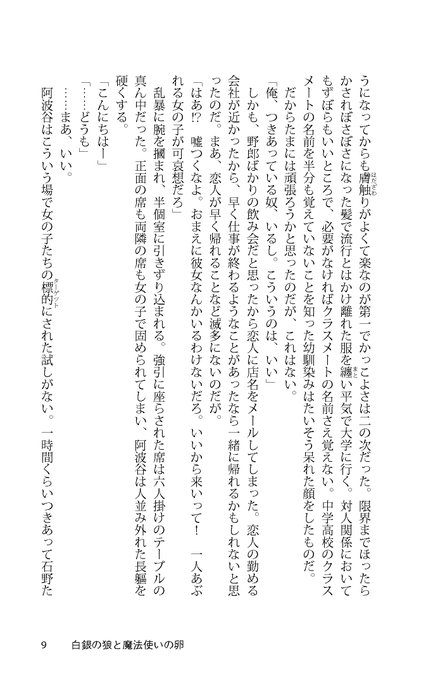 うになってからも膚触りがよくて楽なのが第一でかっこよさは二の次だった。限界までほったら
はだざわ
かされぼさぼさになった髪で流行とはかけ離れた服を纏い平気で大学に行く。対人関係において
まと
もずぼらもいいところで、必要がなければクラスメートの名前さえ覚えない。中学高校のクラス
メートの名前を半分も覚えていないことを知った幼馴染みはたいそう呆れた顔をしたものだ。
だからたまには頑張ろうかと思ったのだが、これはない。
「俺、つきあっている奴、いるし。こういうのは、いい」
しかも、野郎ばかりの飲み会だと思ったから恋人に店名をメールしてしまった。恋人の勤める
会社が近かったから、早く仕事が終わるようなことがあったなら一緒に帰れるかもしれないと思
ったのだ。まあ、恋人が早く帰れることなど滅多にないのだが。
「はあ!? 嘘つくなよ。おまえに彼女なんかいるわけないだろ。いいから来いって! 一人あぶ
れる女の子が可哀想だろ」
乱暴に腕を摑まれ、半個室に引きずり込まれる。強引に座らされた席は六人掛けのテーブルの
真ん中だった。正面の席も両隣の席も女の子で固められてしまい、阿波谷は人並み外れた長軀を
硬くする。
「こんにちはー」
「……どうも」
……まあ、いい。
阿波谷はこういう場で女の子たちの標的にされた試しがない。一時間くらいつきあって石野た
ターゲット
9 白銀の狼と魔法使いの卵